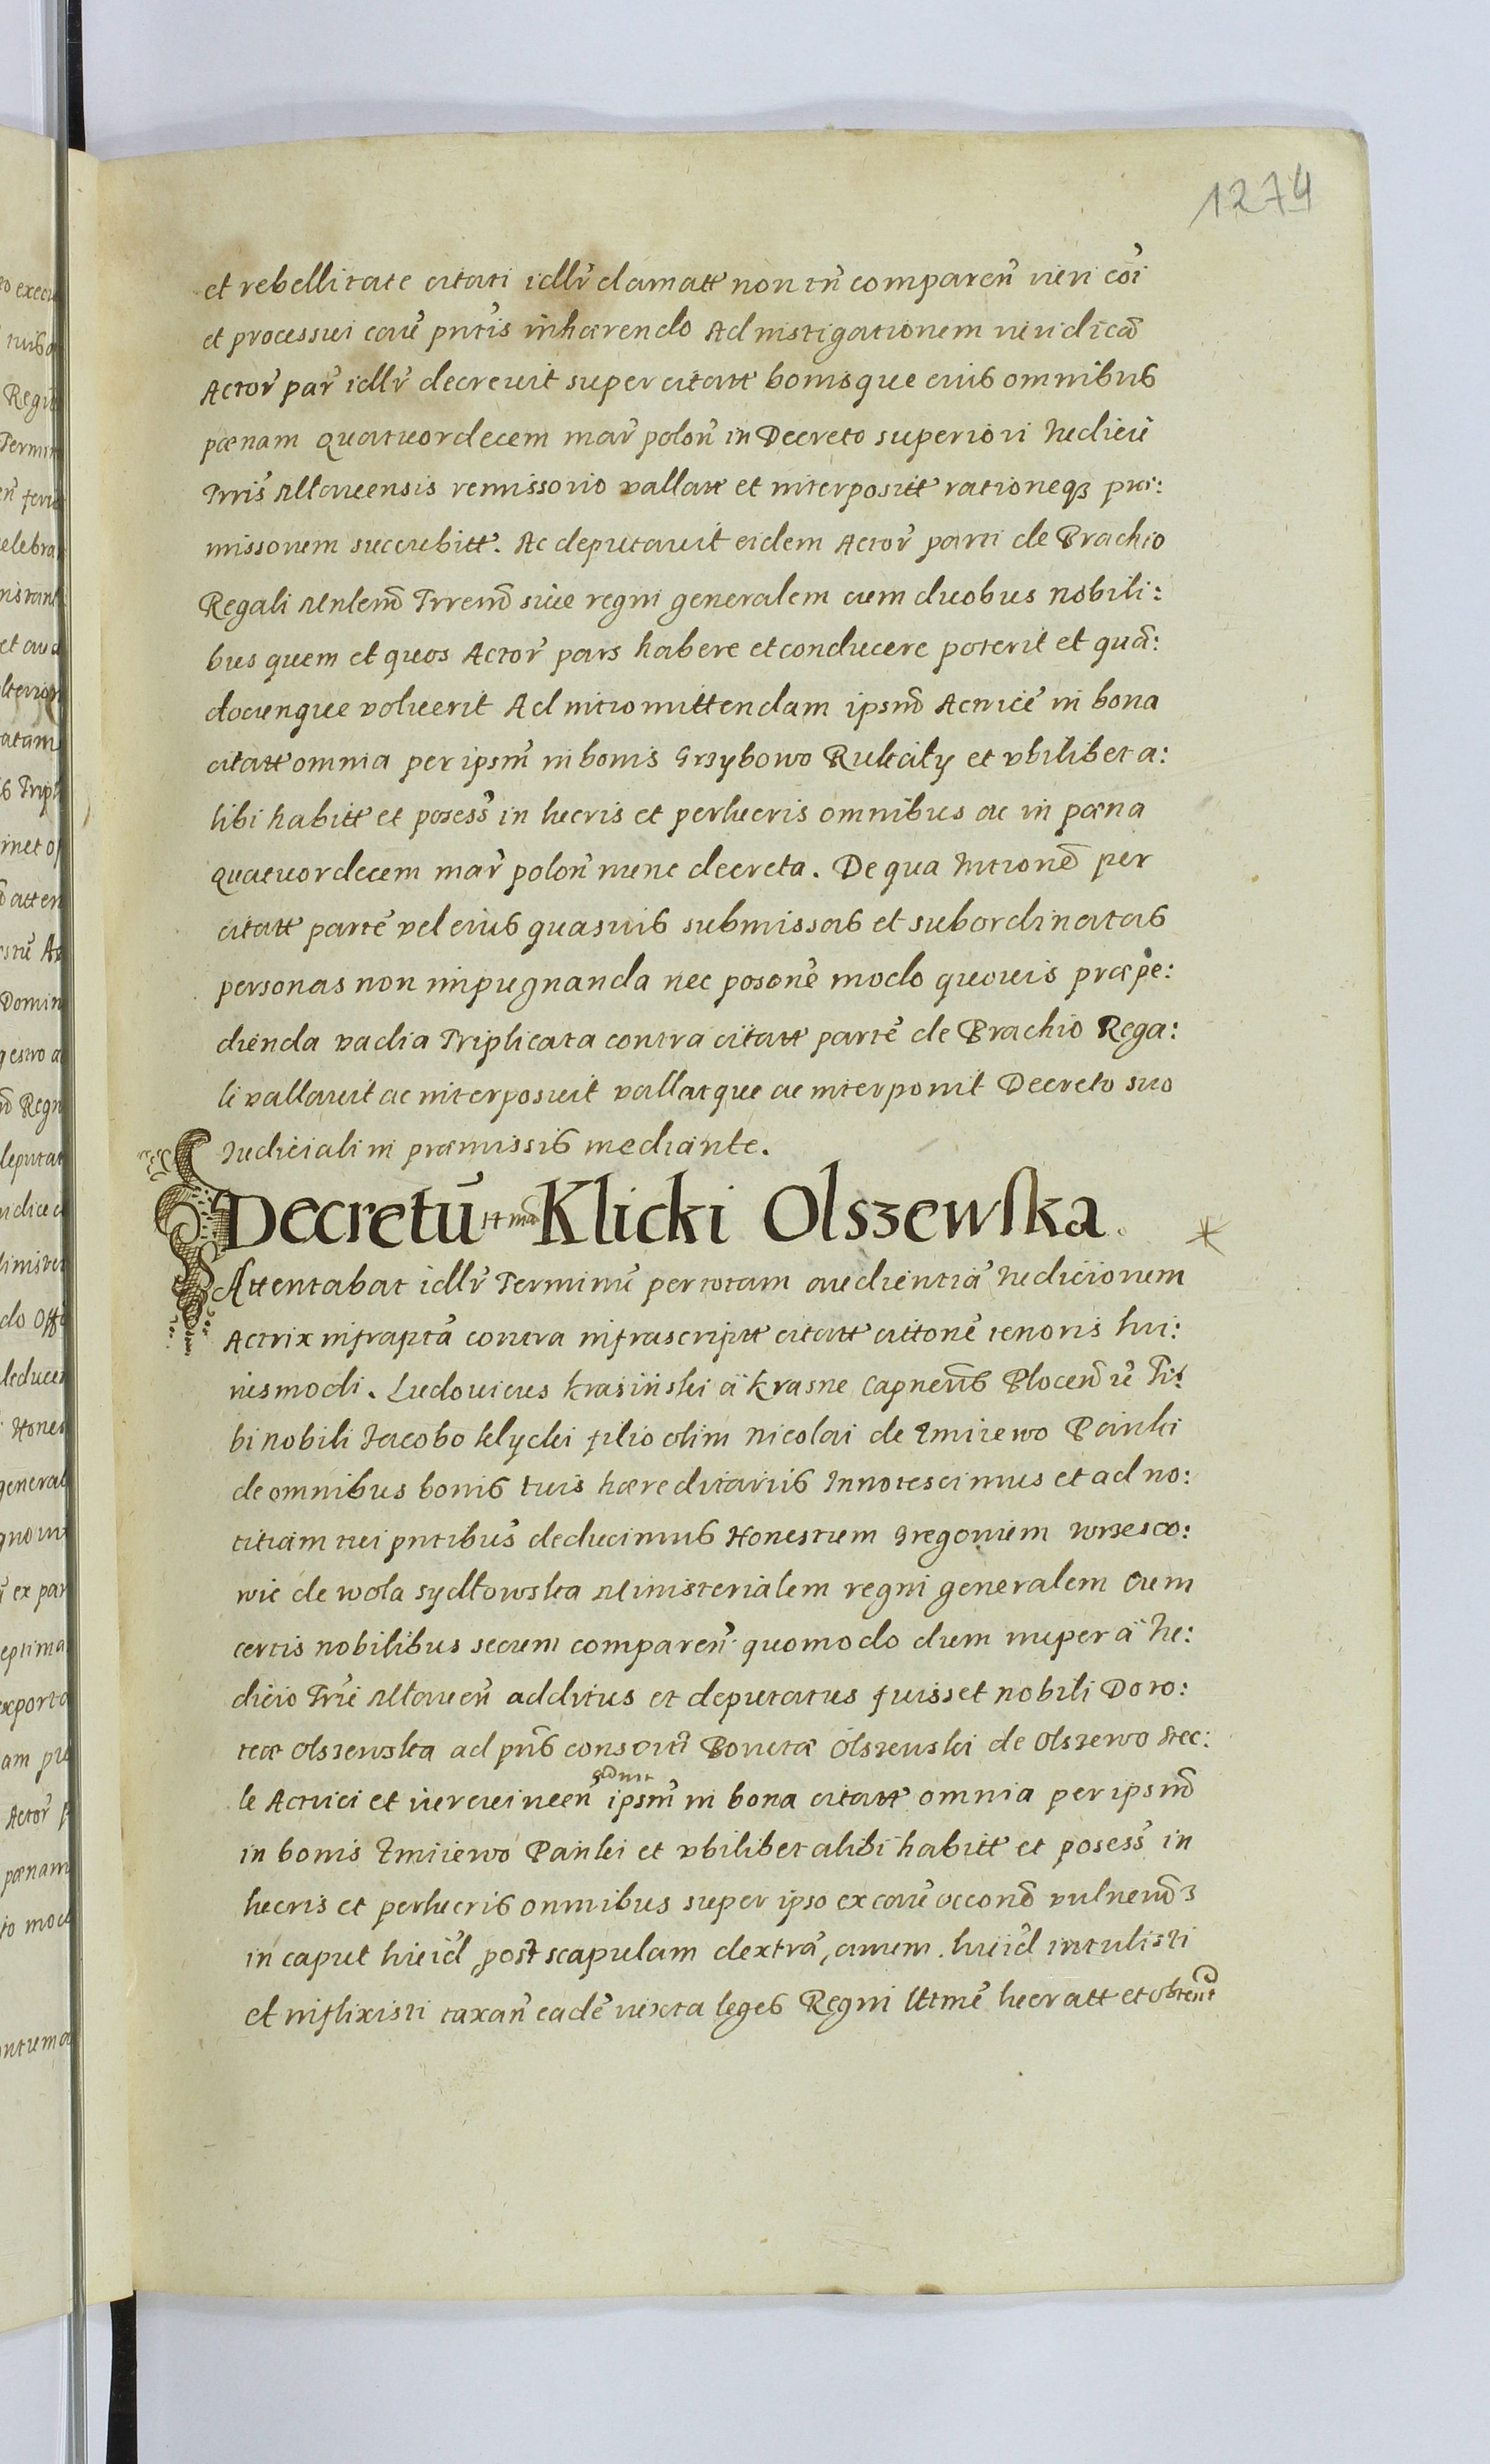 1274
et rebellitate citati idlr̃ clamatt non tñ compareñ iuri cõi
et processui cauẽ pñtis inhærendo Ad instigationem iuridicã
Actor̃ par̃ idlr̃ decrevit super citatt bonisque eius omnibus
pœnam quatuordecem mar̃ poloñ in Decreto superiori Iudicii
Trris Mlaviensis remissorio vallatt et interpositt rationeq3 præ:
missorum succubitt. Ac deputavit eidem Actor̃ parti de Brachio
Regali Mnlem̃ Trrem̃ siue regni generalem cum duobus nobili:
bus quem et quos Actor̃ pars habere et conducere poterit et quã:
docunque voluerit Ad intromittendam ipsam̃ Actricẽ in bona
citatt omnia per ipsm̃ in bonis Grzybowo Rukały et vbilibet a:
libi habitt et posess̃ in lucris et perlucris omnibus ac in pœna
quatuordecem mar̃ poloñ nunc decreta. De qua Intromõe per
citatt partẽ vel eius quasuis submissas et subordinatas
personas non impugnanda nec possonẽ modo quouis præpe:
dienda vadia Triplicata contra citatt partẽ de Brachio Rega:
li vallauit ac interposuit vallatque ac interponit Decreto suo
Iudiciali in præmissis mediante.
Decretũ Klicki Olszewska
Attentabat idlr̃ Terminũ per totam audientiã Iudiciorum
Actrix infraptã contra infrascriptt citatt cittonẽ tenoris hui:
iusmodi. Ludovicus Krasiński ã Krasne Capneñs Plocen̄ ẽ Ti:
bi nobili Iacobo klycki filio olim Nicolai de Zmiiewo Pańki
de omnibus bonis tuis hæreditariis Innotescimus et ad no:
titiam tui pñtibus deducimus Honestum Gregorium Wrzesco:
wic de Wola sydłowska Ministerialem regni generalem cum
certis nobilibus secum compareñ quomodo dum nuper ã Iu:
dicio Trrĩ Mlavieñ additus et deputatus fuisset nobili Doro:
teæ Olszewska ad pñs consorti Olszewski de Olszewo Stec:
le Actrici et ipsm̃ in bona citatt omnia per ipsm̃
in bonis Zmiiewo Pańki et vbilibet alibi habitt et posess̃ in
lucris et perlucris omnibus super ipso ex cauẽ occonẽ vulnerũ 3
in caput luid̃ post scapulam dextrã, luid̃ intulisti
et inflixisti taxañ eadẽ iuxta leges Regni lttmẽ lucratt et obtent